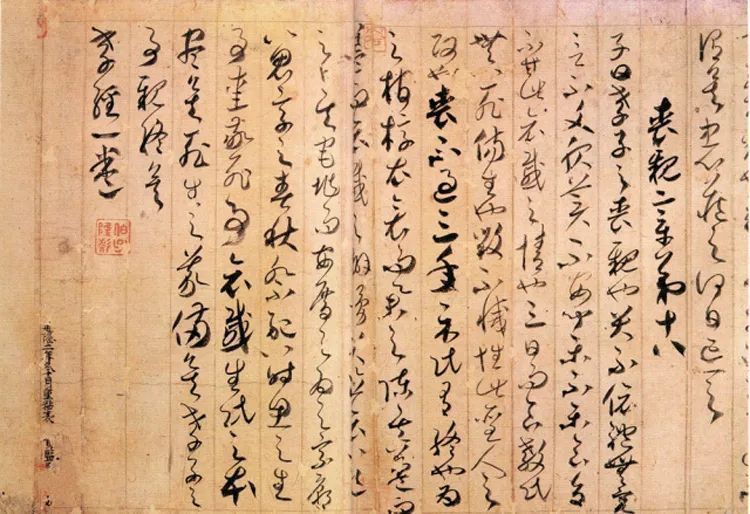 謂矣中心藏之何日忘之
喪親章第十八
子曰孝子之喪親也哭不依禮無容
言不文服美不安聞樂不樂食旨
不甘此哀慼之情也三日而食教民
無以死傷生也毀不滅性此聖人之
政也喪不過三年示民有終也為
之棺椁衣衾而舉之陳其簠簋而
哀慼之擗踊哭泣哀以送
之卜其宅兆而安厝之為之宗廟
以鬼享之春秋祭祀以時思之生
事愛敬死事哀慼生民之本
盡矣死生之義備矣孝子之
事親終矣
孝經一卷
建隆二年冬十月重粘表 賀監